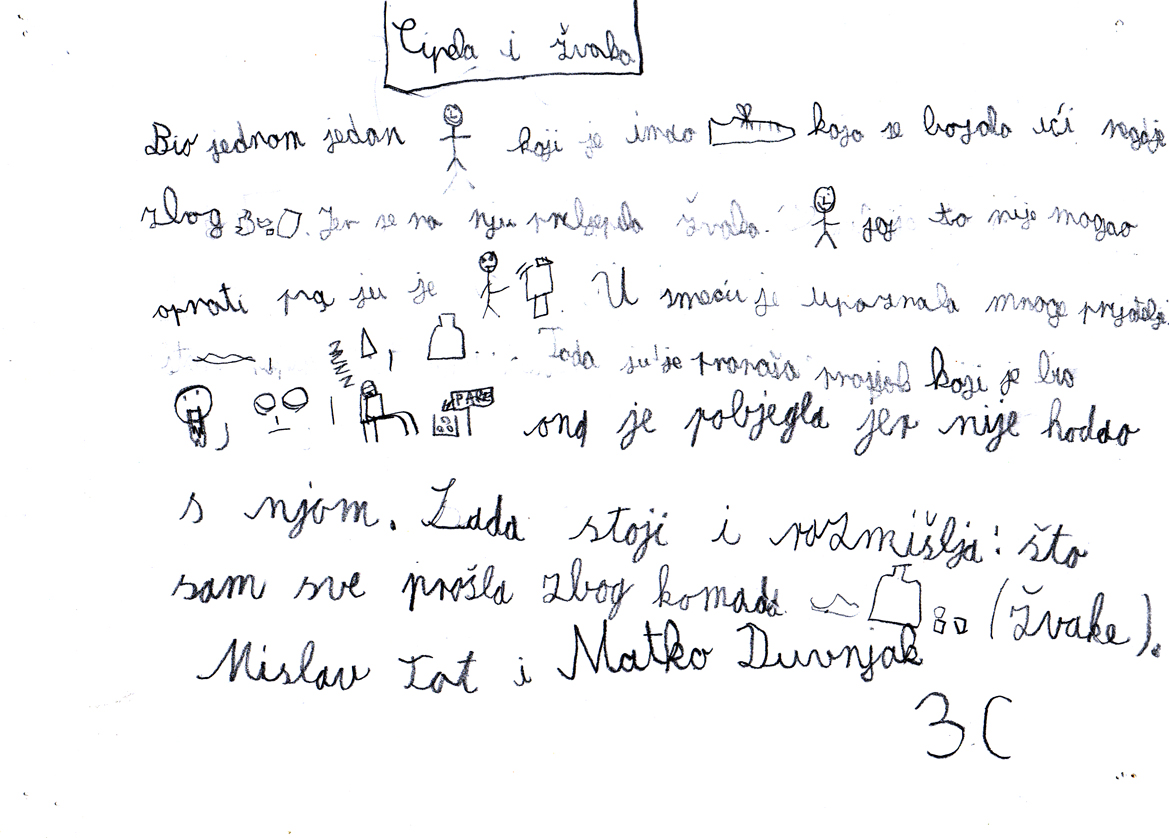 Cipela i žvaka
Bio jednom jedan koji je imao koja se bojala ići negdje
zbog . Jer se na nju prelijepila žvaka. joj to nije mogao
oprati pa ju je . U smeću je upoznala mnoge prijatelje
ZZZZ , ... Tada ju je pronaša prosjak koji je bio
, PARE ona je pobjegla jer nije hodao
s njom. Sada stoji i razmišlja: što
sam sve prošla zbog komada (žvake).
Mislav Tot i Matko Duvnjak
3C